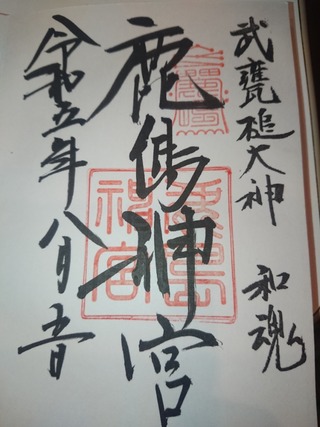 武甕槌大神 和魂
鹿島神宮
令和五年八月五日
鹿島
神宮